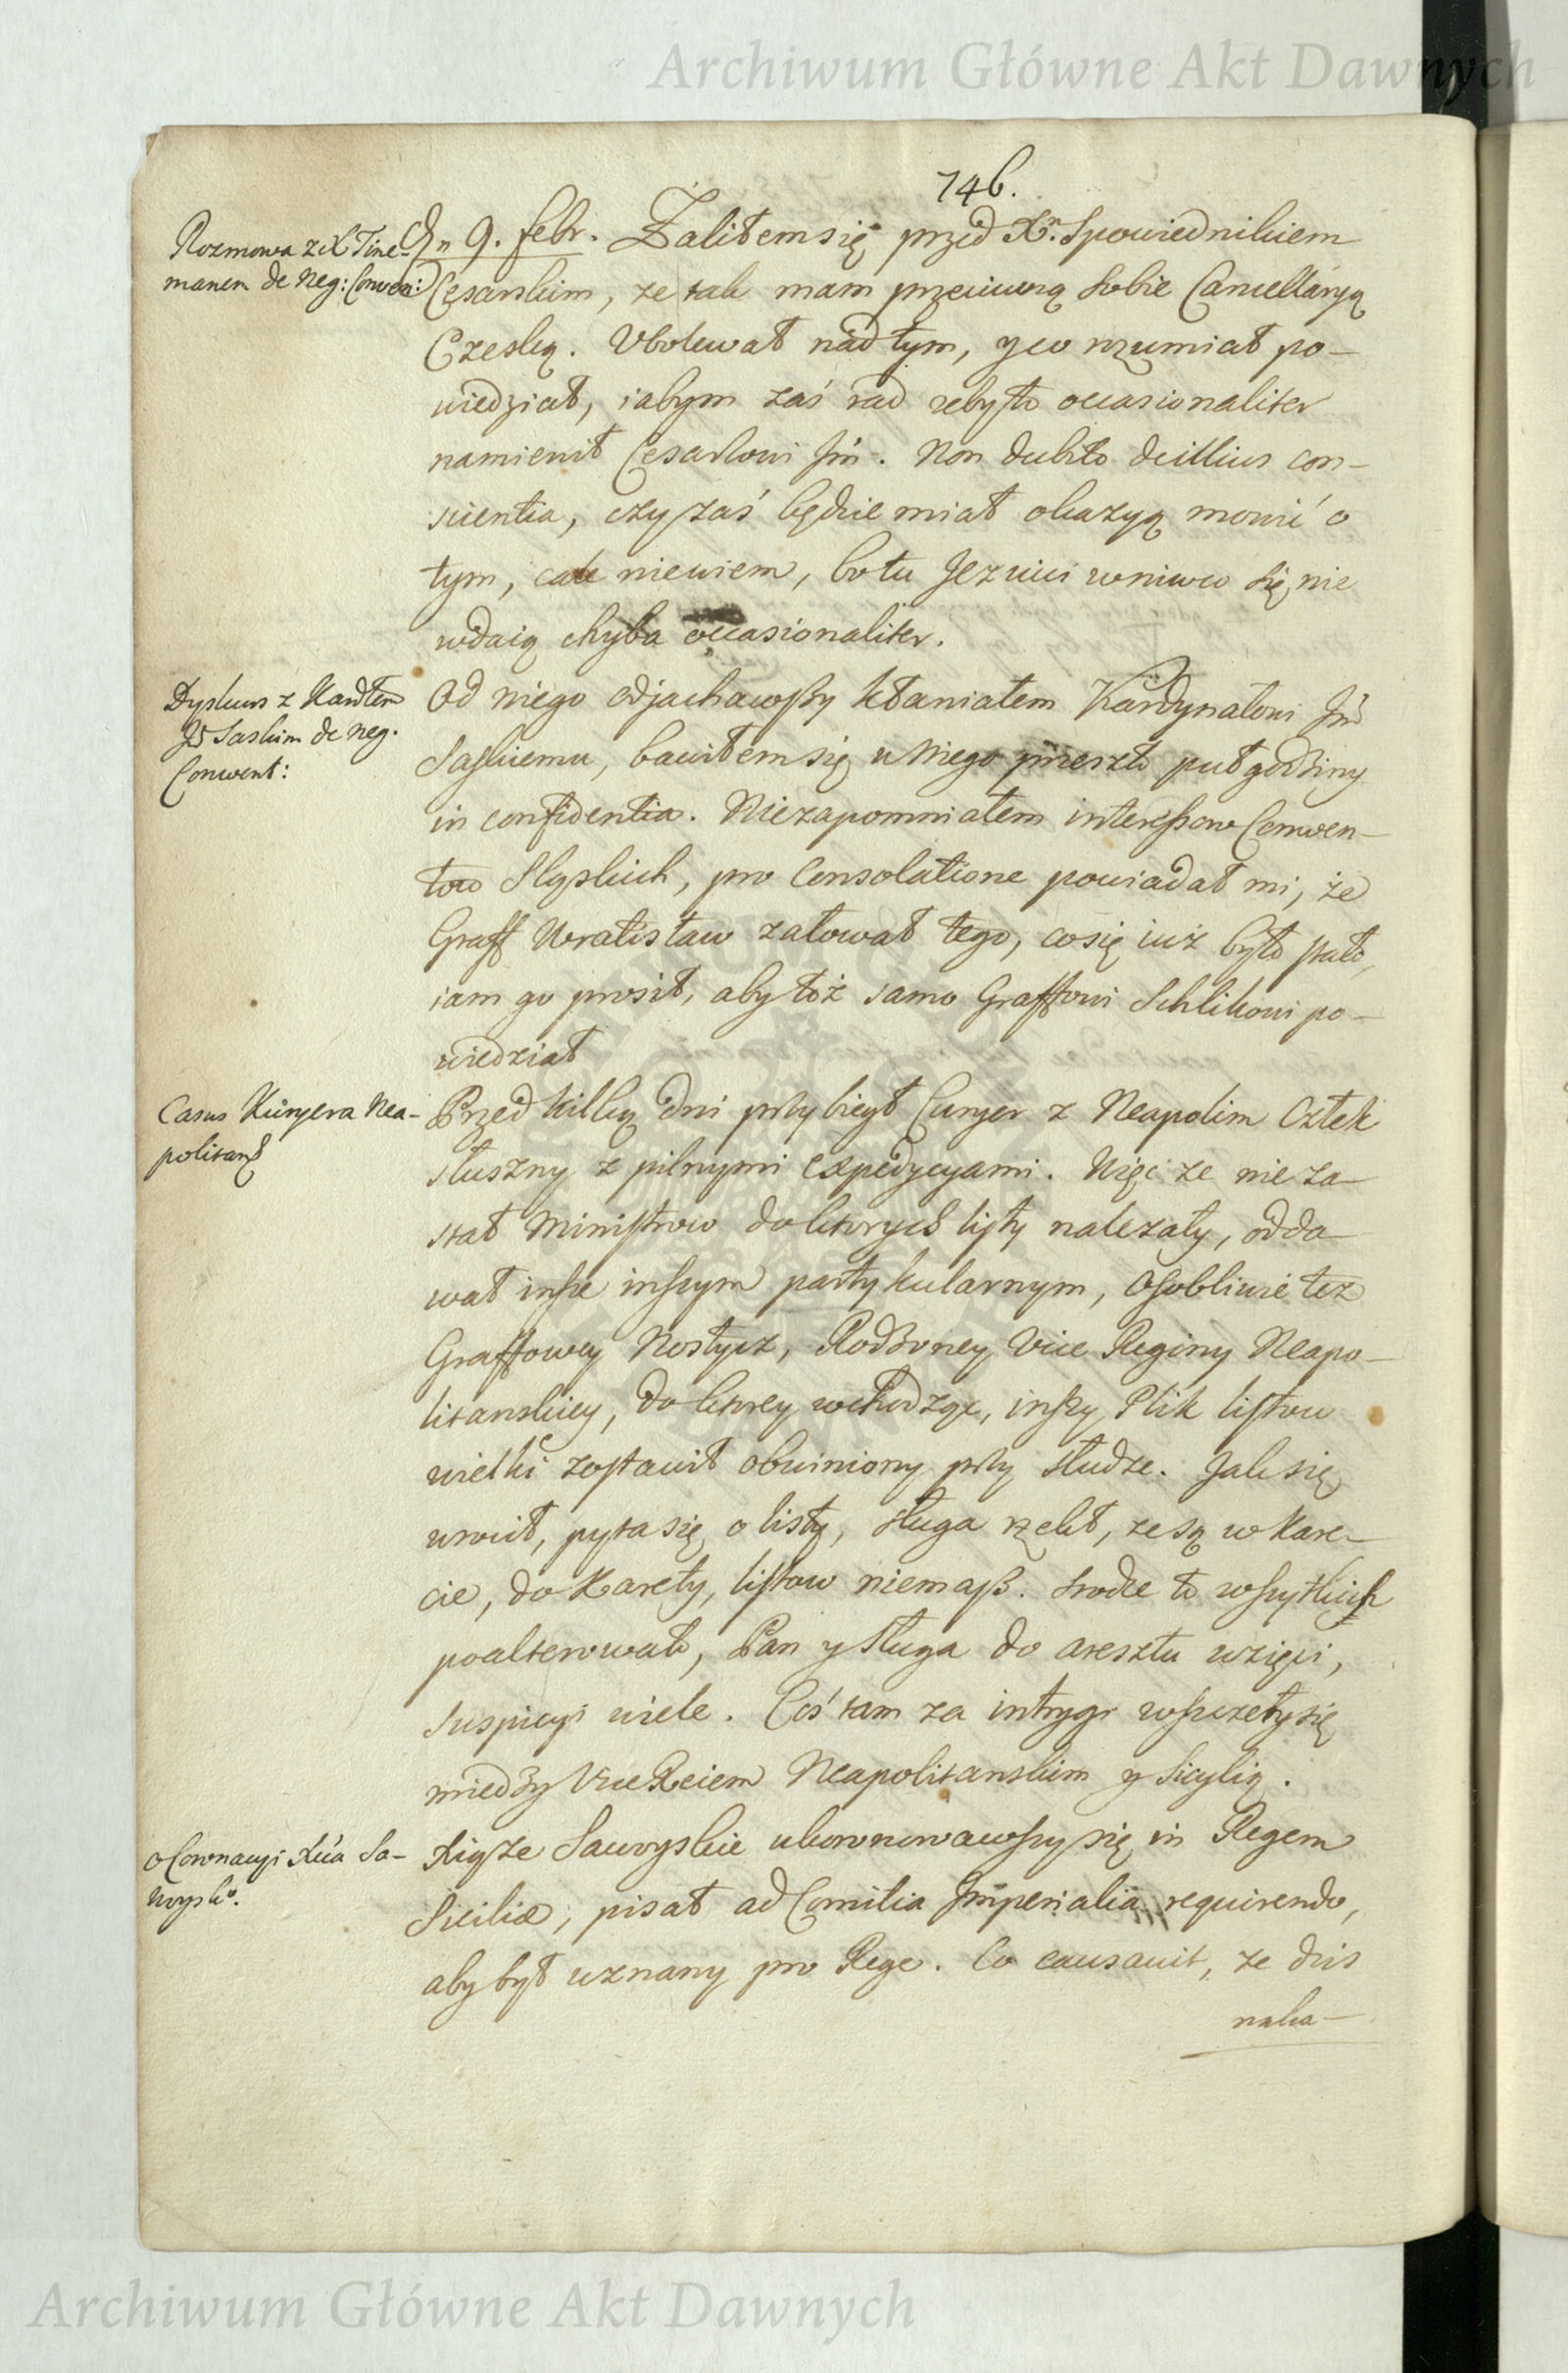 Archiwum Główne Akt Dawnych
746.
Rozmowa z X Tine-
manem de Neg: Conven:
Dn 9. febr. Zaliłem się przed Xm. Spowiednikiem
Cesarskim, ze tak mam przeciwną sobie Cancellaryą
Czeską. Vbolewał nad tym, y co rozumiał po-
wiedział, iabym zaś rad zeby to occasionaliter
namienił Cesarzowi Jm. Non dubito de illius con-
scientia, czy zaś będzie miał okazyą mowić o
tym, cale niewiem, bo tu Jezuici wniwco się nie
wdaią chyba occasionaliter.
Dyskurs z Kardłem
Jm Saskim de neg.
Convent:
Od niego odjachawszy kłaniałem Kardynałowi Jm
Saskiemu, bawiłem się u niego przeszło puł godziny
in confidentia. Niezapomniałem interessow Conwen-
tow Sląskich, pro Consolatione powiadał mi, że
Graff Wratisław załował tego, co się iuż było stało,
iam go prosił, aby toż samo Graffowi Schlikowi po-
wiedział
Casus Kuryera Nea-
politano
Przed kilką dni przybiegł Curyer z Neapolim Człek
słuszny z pilnymi expedycyami. Więc ze nie za-
stał Ministrow do ktorych listy nalezały, odda-
wał insze inszym partykularnym, osobliwie tez
Graffowey Nostycz, Rodzoney Vice Reginy Neapo-
litanskiey, do ktorey wchodząc, inszy Plik listow
wielki zostawił obwiniony przy słudze. Jak się
wrocił, pyta się o listy, sługa rzekł, ze są w Kare-
cie, do Karety, listow niemasz. Srodze to wszytkich
poalterowało, Pan y sługa do aresztu wzięci,
suspicyi wiele. Coś tam za intrygi wszczęły się
miedzy Vice Reiem Neapolitanskim y Sicylią.
o Coronacyi Xcia Sa-
woysko.
Xiąze Sawoyskie ukoronowawszy się in Regem
Siciliæ, pisał ad Comitia Imperialia requirendo,
aby był uznany pro Rege. Co causavit, ze dzis
naka-
Archiwum Główne Akt Dawnych